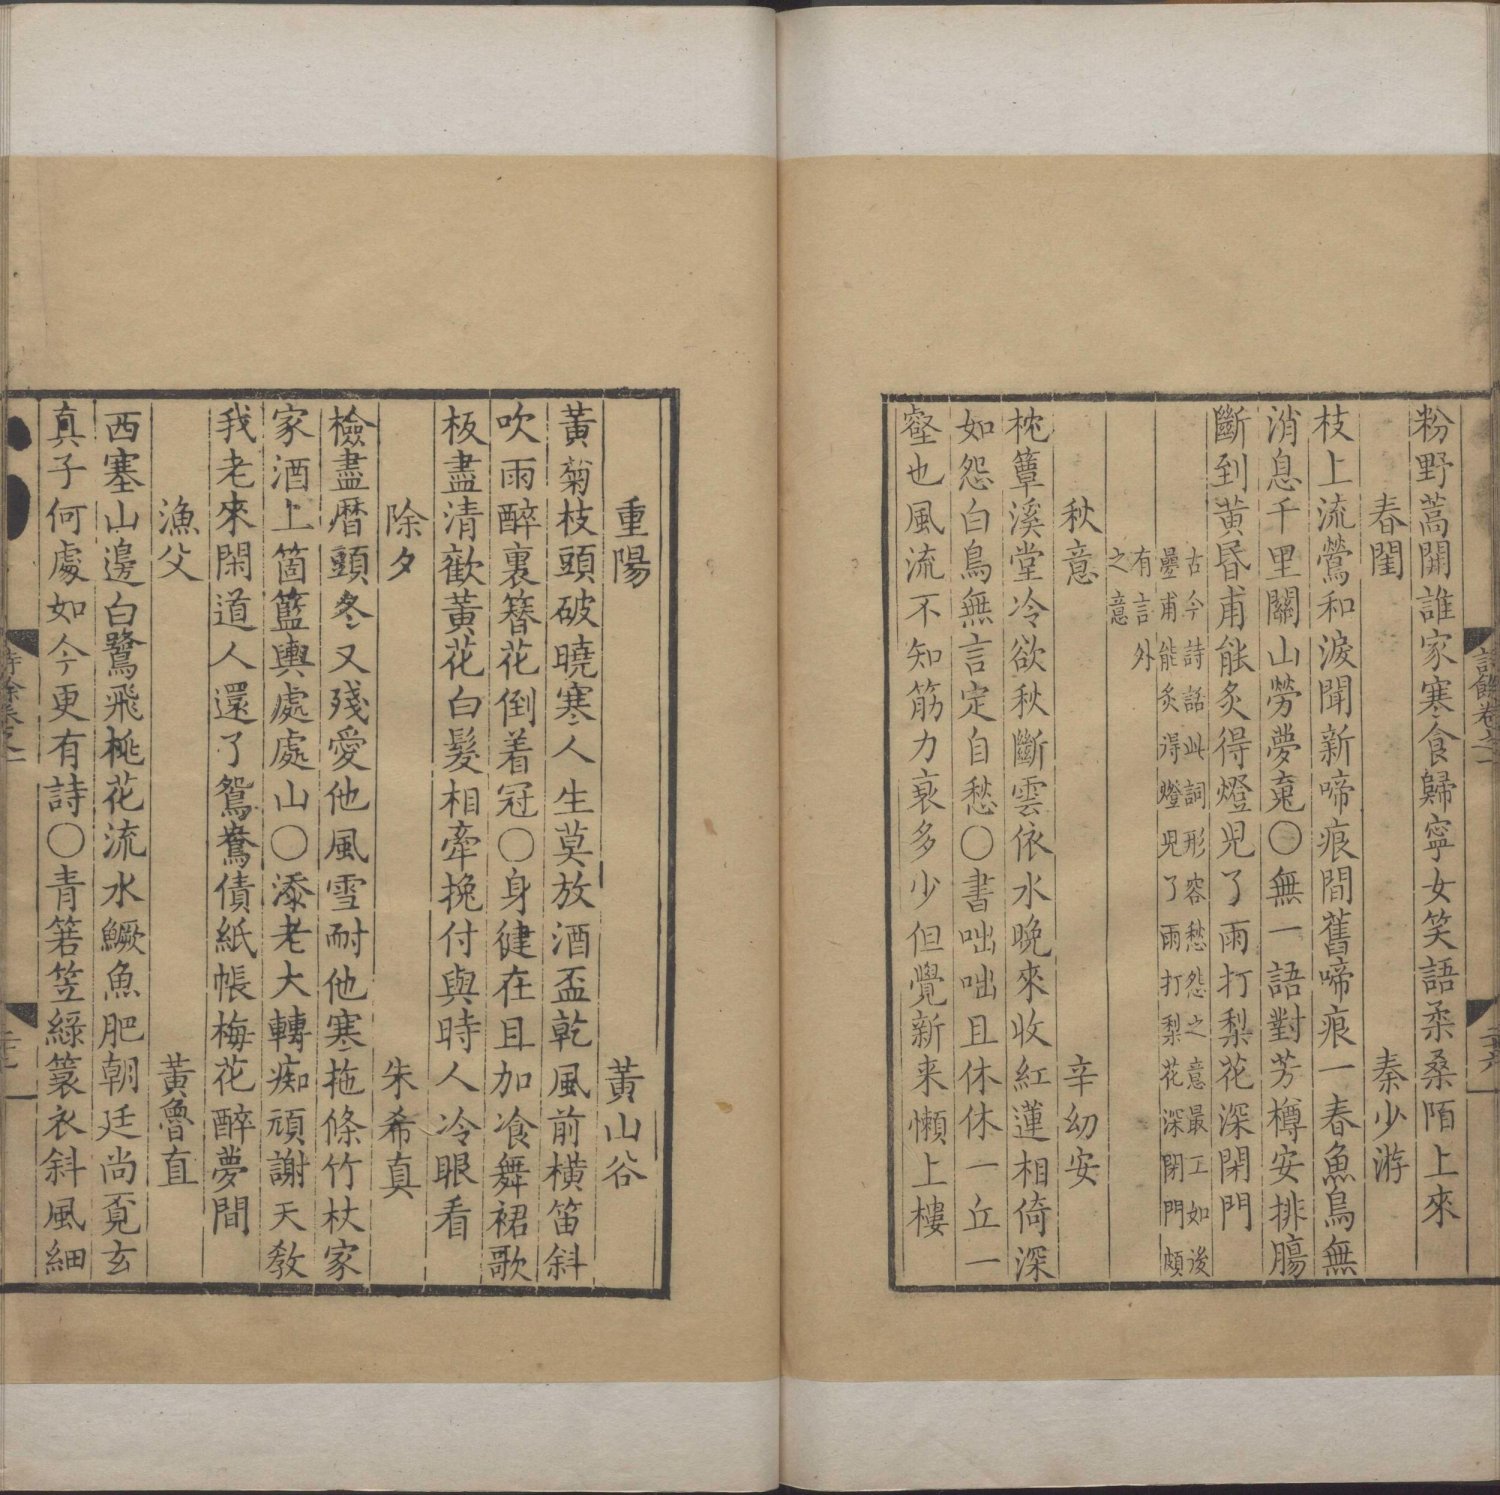 粉野蒿開誰家寒食歸寧女笑語柔桑陌上來
春閨 秦少游
枝上流鶯和淚聞新啼痕間舊啼痕一春魚鳥無
消息千里關山勞夢䰟〇無一語對芳樽安排膓
斷到黃昏甫能炙得燈兒了雨打梨花深閉門
古今詩話此詞形容愁怨之意最工如後
疊甫能炙得燈兒了雨打梨花深閉門頗
有言外
之意
秋意 辛幼安
枕簟溪堂冷欲秋斷雲依水晚來收紅蓮相倚深
如怨白鳥無言定自愁〇書咄咄且休休一丘一
壑也風流不知筋力衰多少但覺新来懶上樓
重陽 黃山谷
黃菊枝頭破曉寒人生莫放酒盃乾風前横笛斜
吹雨醉裏簪花倒着冠〇身健在且加飡舞裙歌
板盡清歡黃花白髮相牽挽付與時人冷眼看
除夕 朱希真
檢盡曆頭冬又殘愛他風雪耐他寒拖條竹杖家
家酒上箇籃輿處處山〇添老大轉痴頑謝天教
我老來閑道人還了鴛鴦債紙帳梅花醉夢間
漁父 黃魯直
西塞山邊白鷺飛桃花流水鱖魚肥朝廷尚覓玄
真子何處如今更有詩〇青箬笠綠簑衣斜風細